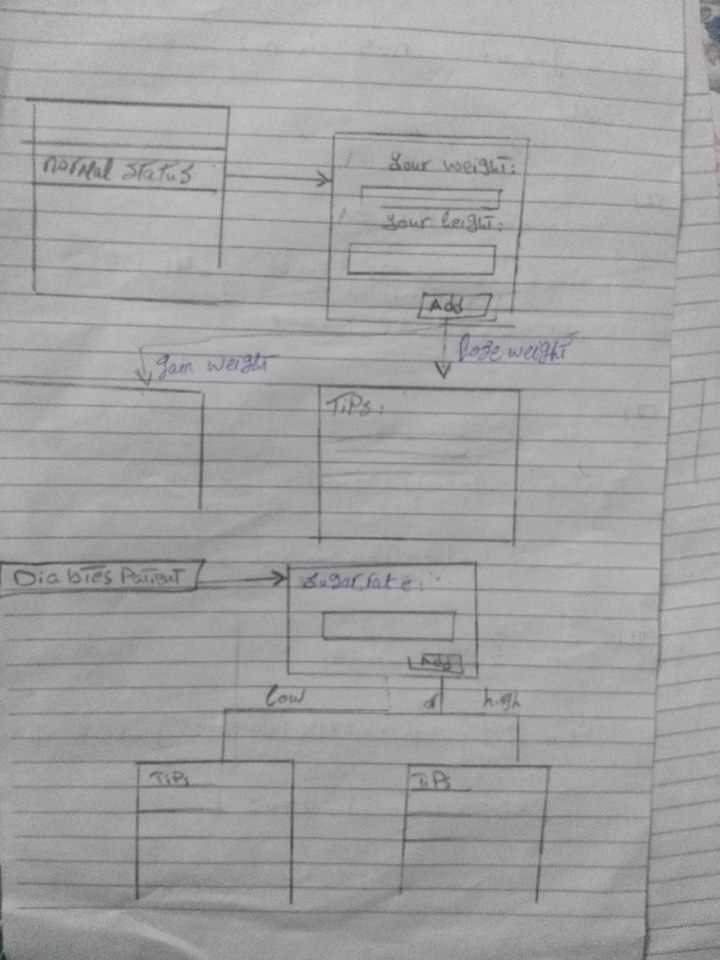 normal status
Your weight:
Your height:
Add
gain weight
lose weight
Tips:
Diabties Patient
Sugar rate:
Add
low
or
high
Tips
Tips